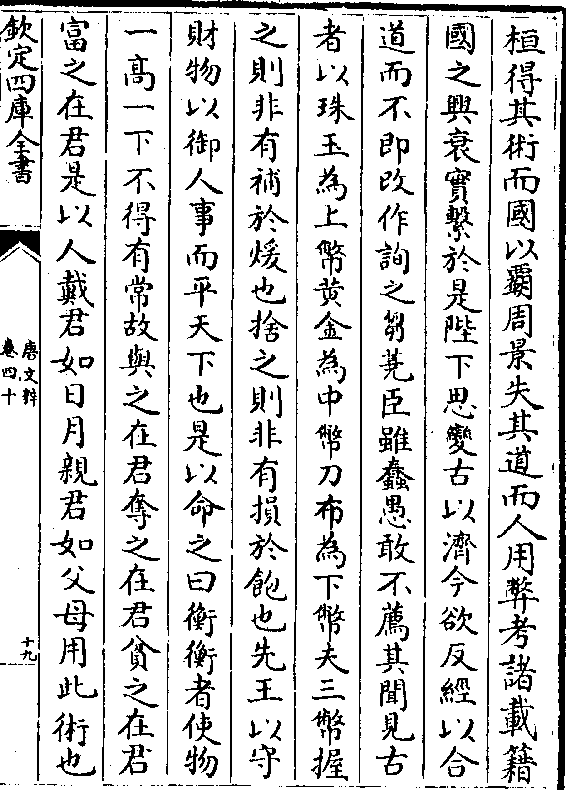 桓得其術而國以霸周景失其道而人用弊考諸載籍
國之興衰實繫於是陛下思變古以濟今欲反經以合
道而不即改作詢之芻蕘臣雖蠢愚敢不薦其聞見古
者以珠玉為上幣黄金為中幣刀布為下幣夫三幣握
之則非有補於煖也捨之則非有損於飽也先王以守
財物以御人事而平天下也是以命之曰衡衡者使物
一高一下不得有常故與之在君奪之在君貧之在君
富之在君是以人戴君如日月親君如父母用此術也
欽定四庫全書
唐文粹
卷四十
十九